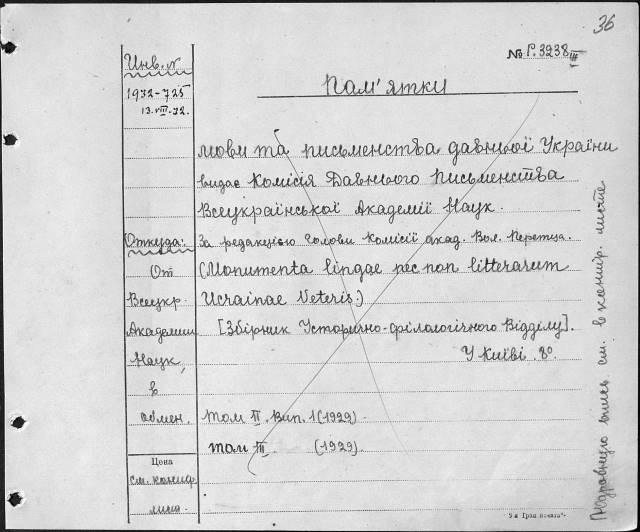 36
№ Г.3238 III
Инв. №
1932-725
13.VIII.32.
Пам'ятки
мови та письменства давньої України
видає Комісія Давнього Письменства
Всеукраїнської Академії Наук.
Откуда:
За редакцією Голови Комісії акад. Вол. Перетца.
От
(Monumenta lingae nec non litterarum
Всеукр.
Ucrainae Veteris.)
Академии
[Збірник Історично-філологічного Відділу].
Наук,
У Київі. 8º
в
обмен.
Том II. Вип. 1 (1929).
том III. (1929).
Цена
см. каниф.
вись см. в каниф. листе